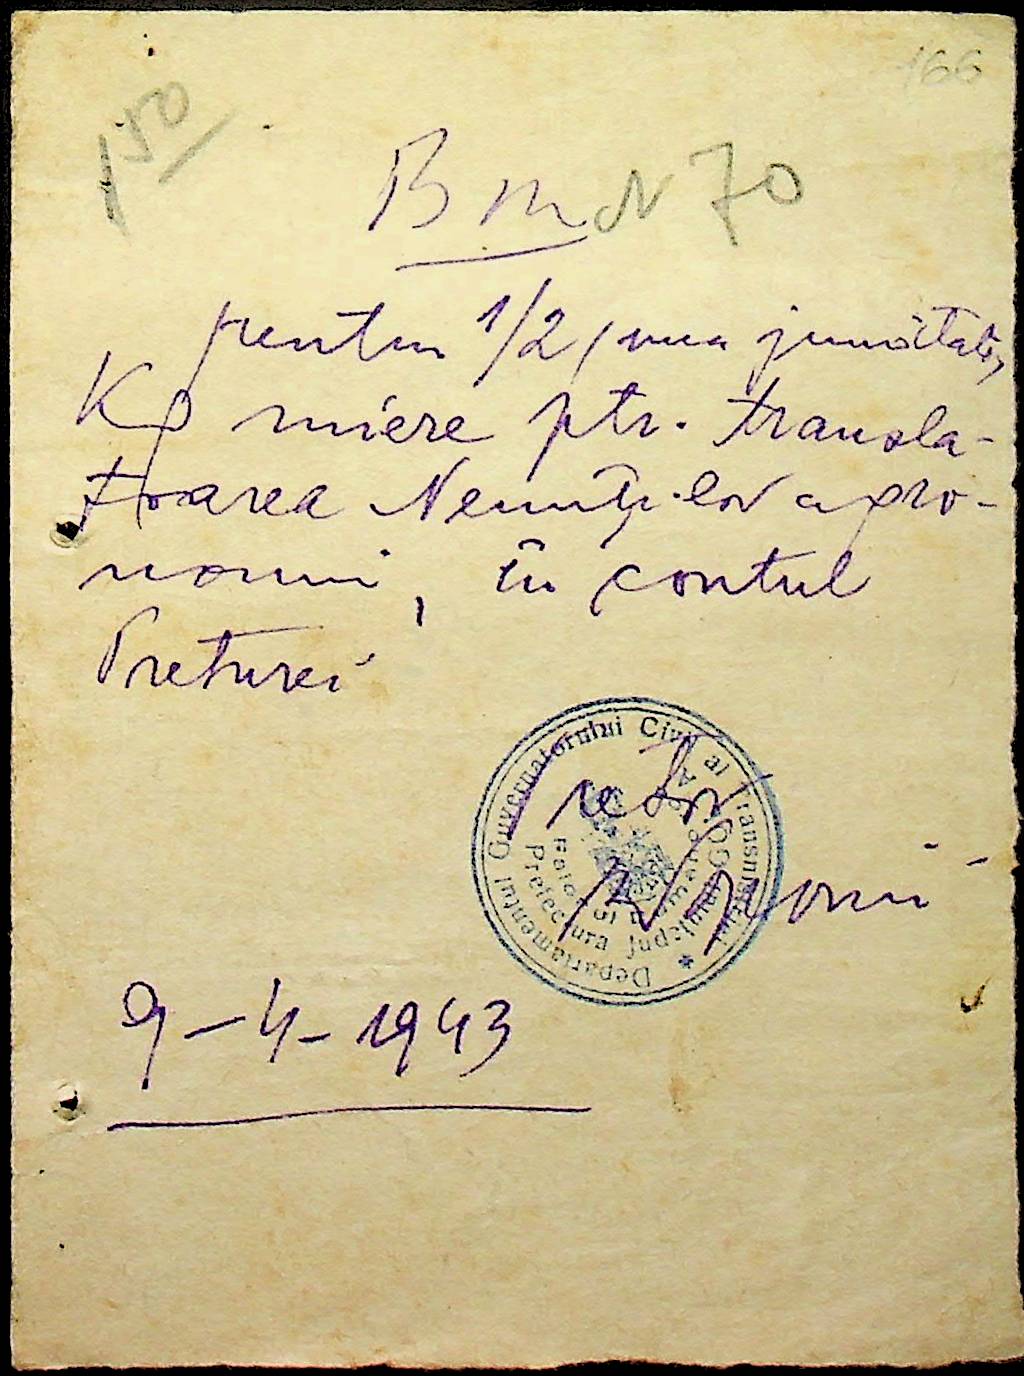 166
1 50
Bon N 70
pentru 1/2, una jumătate,
Kg miere ptr. transla-
toarea Nemților agro-
nomi, în contul
Preturei
Pretor
Departamentul Guvernatorului Civil al Transnistriei
Prefectura Județului
9-4-1943